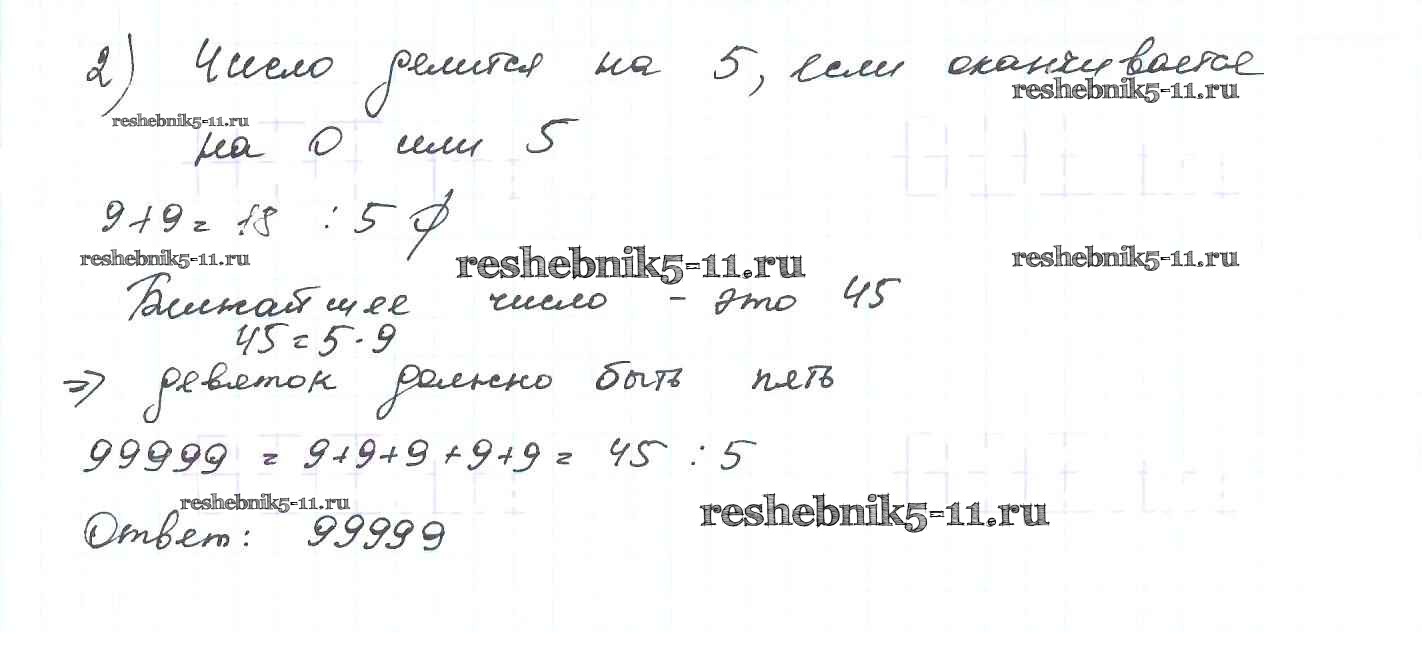 2) Число делится на 5, если оканчивается
reshebnik5-11.ru
reshebnik5-11.ru
на 0 или 5
9+9= 18 : 5
reshebnik5-11.ru
reshebnik5-11.ru
reshebnik5-11.ru
Ближайшее число - это 45
45=5·9
⇒ девяток должно быть пять
99999 = 9+9+9+9+9= 45 : 5
reshebnik5-11.ru
reshebnik5-11.ru
Ответ: 99999